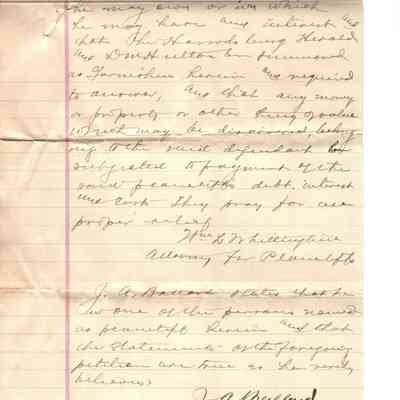 he may own or in which
he may have any interest and
that The Harrodsburg Herald
and D M Hutton be summoned
as Garnishees herein and required
to answer, and that any money
or property or other thing of value
which may be discovered, belong-
ing to the said defendant be
subjected to payment of the
said plaintiffs debt, interest
and cost. They pray for all
proper relief
Wm L Whittinghill
Attorney for Plaintiffs
J. A. Ballard states that he
is one of the persons named
as plaintiff herein and that
the statements of the foregoing
petition are true as he verily
believes.
J A Ballard